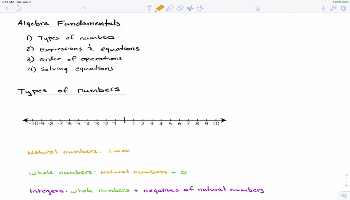 Algebra Fundamentals
1) Types of numbers
2) Expressions & equations
3) Order of operations
4) Solving equations
Types of numbers
-10 -9 -8 -7 -6 -5 -4 -3 -2 -1 1 2 3 4 5 6 7 8 9 10
Natural numbers: 1→∞
Whole numbers: Natural numbers + 0
Integers: whole numbers + negatives of natural numbers